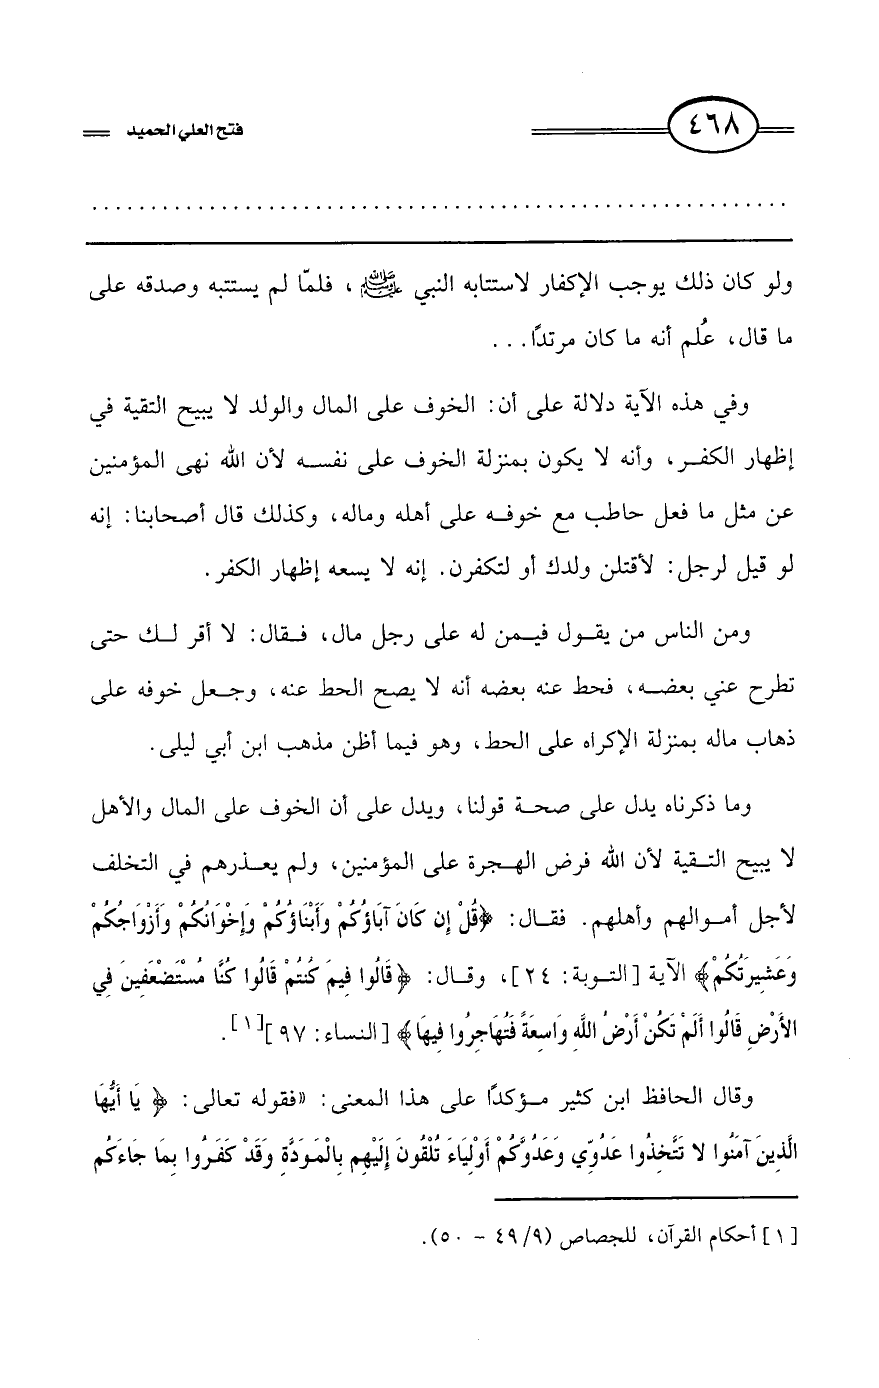 ٤٦٨
فتح العلي الحميد
ولو كان ذلك يوجب الإكفار لاستتابه النبي ﷺ، فلمّا لم يستتبه وصدقه على
ما قال، عُلم أنه ما كان مرتدًا...
وفي هذه الآية دلالة على أن: الخوف على المال والولد لا يبيح التقية في
إظهار الكفر، وأنه لا يكون بمنزلة الخوف على نفسه لأن الله نهى المؤمنين
عن مثل ما فعل حاطب مع خوفه على أهله وماله، وكذلك قال أصحابنا: إنه
لو قيل لرجل: لأقتلن ولدك أو لتكفرن. إنه لا يسعه إظهار الكفر.
ومن الناس من يقول فيمن له على رجل مال، فقال: لا أقر لك حتى
تطرح عني بعضه، فحط عنه بعضه أنه لا يصح الحط عنه، وجعل خوفه على
ذهاب ماله بمنزلة الإكراه على الحط، وهو فيما أظن مذهب ابن أبي ليلى.
وما ذكرناه يدل على صحة قولنا، ويدل على أن الخوف على المال والأهل
لا يبيح التقية لأن الله فرض الهجرة على المؤمنين، ولم يعذرهم في التخلف
لأجل أموالهم وأهلهم. فقال: ﴿قُلْ إِن كَانَ آبَاؤُكُمْ وَأَبْنَاؤُكُمْ وَإِخْوَانُكُمْ وَأَزْوَاجُكُمْ
وَعَشِيرَتُكُمْ﴾ الآية [التوبة: ٢٤]، وقال: ﴿قَالُوا فِيمَ كُنتُمْ قَالُوا كُنَّا مُسْتَضْعَفِينَ فِي
الأَرْضِ قَالُوا أَلَمْ تَكُنْ أَرْضُ اللَّهِ وَاسِعَةً فَتُهَاجِرُوا فِيهَا﴾ [النساء: ٩٧][١].
وقال الحافظ ابن كثير مؤكدًا على هذا المعنى: «فقوله تعالى: ﴿يَا أَيُّهَا
الَّذِينَ آمَنُوا لا تَتَّخِذُوا عَدُوِّي وَعَدُوَّكُمْ أَوْلِيَاءَ تُلْقُونَ إِلَيْهِم بِالْمَوَدَّةِ وَقَدْ كَفَرُوا بِمَا جَاءَكُم
[١] أحكام القرآن، للجصاص (٩/ ٤٩ - ٥٠).